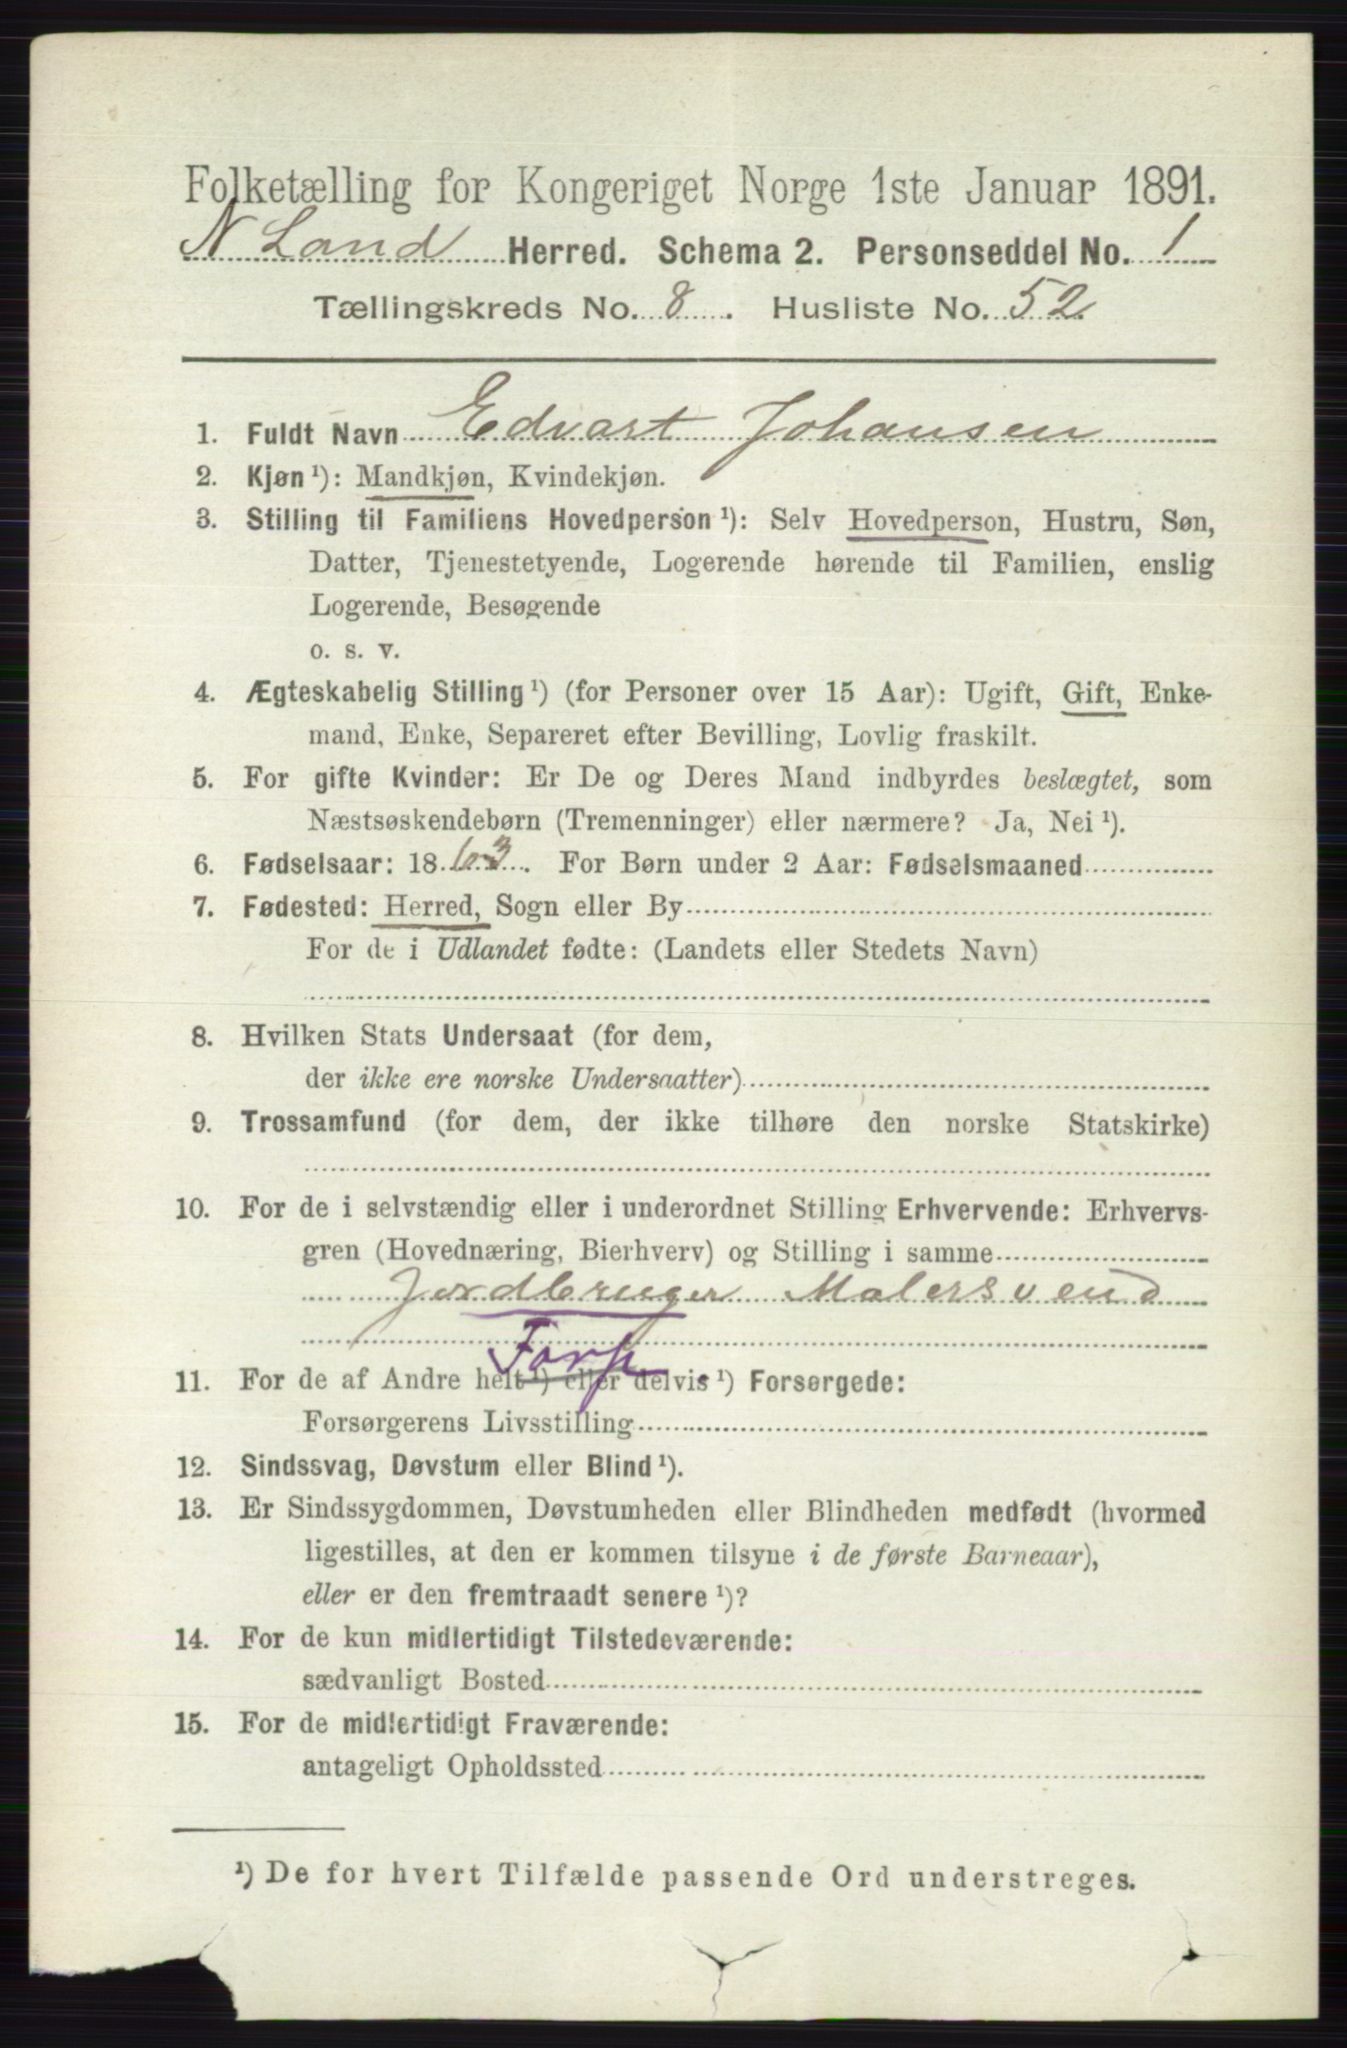 Folketælling for Kongeriget Norge 1ste Januar 1891.
N Land Herred. Schema 2. Personseddel No. 1
Tællingskreds No. 8. Husliste No. 52.
1. Fuldt Navn Edvart Johansen
2. Kjøn ¹): Mandkjøn, Kvindekjøn.
3. Stilling til Familiens Hovedperson ¹): Selv Hovedperson, Hustru, Søn,
Datter, Tjenestetyende, Logerende hørende til Familien, enslig
Logerende, Besøgende
o. s. v.
4. Ægteskabelig Stilling ¹) (for Personer over 15 Aar): Ugift, Gift, Enke-
mand, Enke, Separeret efter Bevilling, Lovlig fraskilt.
5. For gifte Kvinder: Er De og Deres Mand indbyrdes beslægtet, som
Næstsøskendebørn (Tremenninger) eller nærmere? Ja, Nei ¹).
6. Fødselsaar: 1863. For Børn under 2 Aar: Fødselsmaaned
7. Fødested: Herred, Sogn eller By
For de i Udlandet fødte: (Landets eller Stedets Navn)
8. Hvilken Stats Undersaat (for dem,
der ikke ere norske Undersaatter)
9. Trossamfund (for dem, der ikke tilhøre den norske Statskirke)
10. For de i selvstændig eller i underordnet Stilling Erhvervende: Erhvervs-
gren (Hovednæring, Bierhverv) og Stilling i samme
Jordbruger Malersvend
Forp.
11. For de af Andre helt ¹) eller delvis ¹) Forsørgede:
Forsørgerens Livsstilling
12. Sindssvag, Døvstum eller Blind ¹).
13. Er Sindssygdommen, Døvstumheden eller Blindheden medfødt (hvormed
ligestilles, at den er kommen tilsyne i de første Barneaar),
eller er den fremtraadt senere ¹)?
14. For de kun midlertidigt Tilstedeværende:
sædvanligt Bosted
15. For de midlertidigt Fraværende:
antageligt Opholdssted
¹) De for hvert Tilfælde passende Ord understreges.